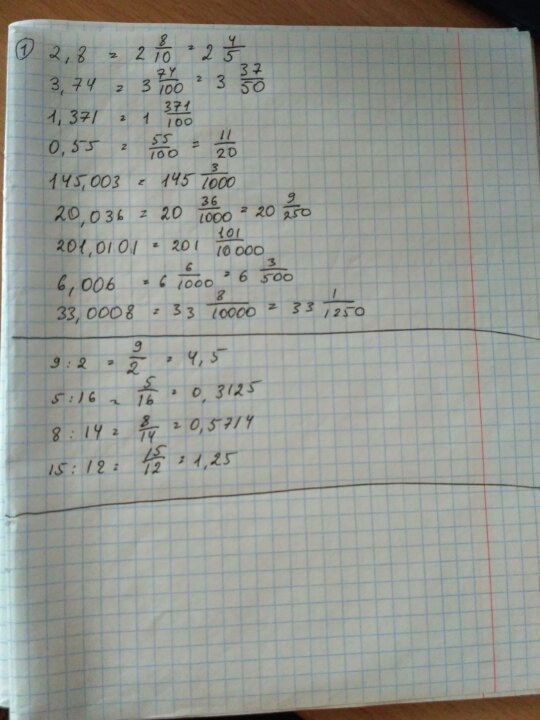 ① 2,8 = 2 8/10 = 2 4/5
3,74 = 3 74/100 = 3 37/50
1,371 = 1 371/100
0,55 = 55/100 = 11/20
145,003 = 145 3/1000
20,036 = 20 36/1000 = 20 9/250
201,0101 = 201 101/10000
6,006 = 6 6/1000 = 6 3/500
33,0008 = 33 8/10000 = 33 1/1250
9:2 = 9/2 = 4,5
5:16 = 5/16 = 0,3125
8:14 = 8/14 = 0,5714
15:12 = 15/12 = 1,25